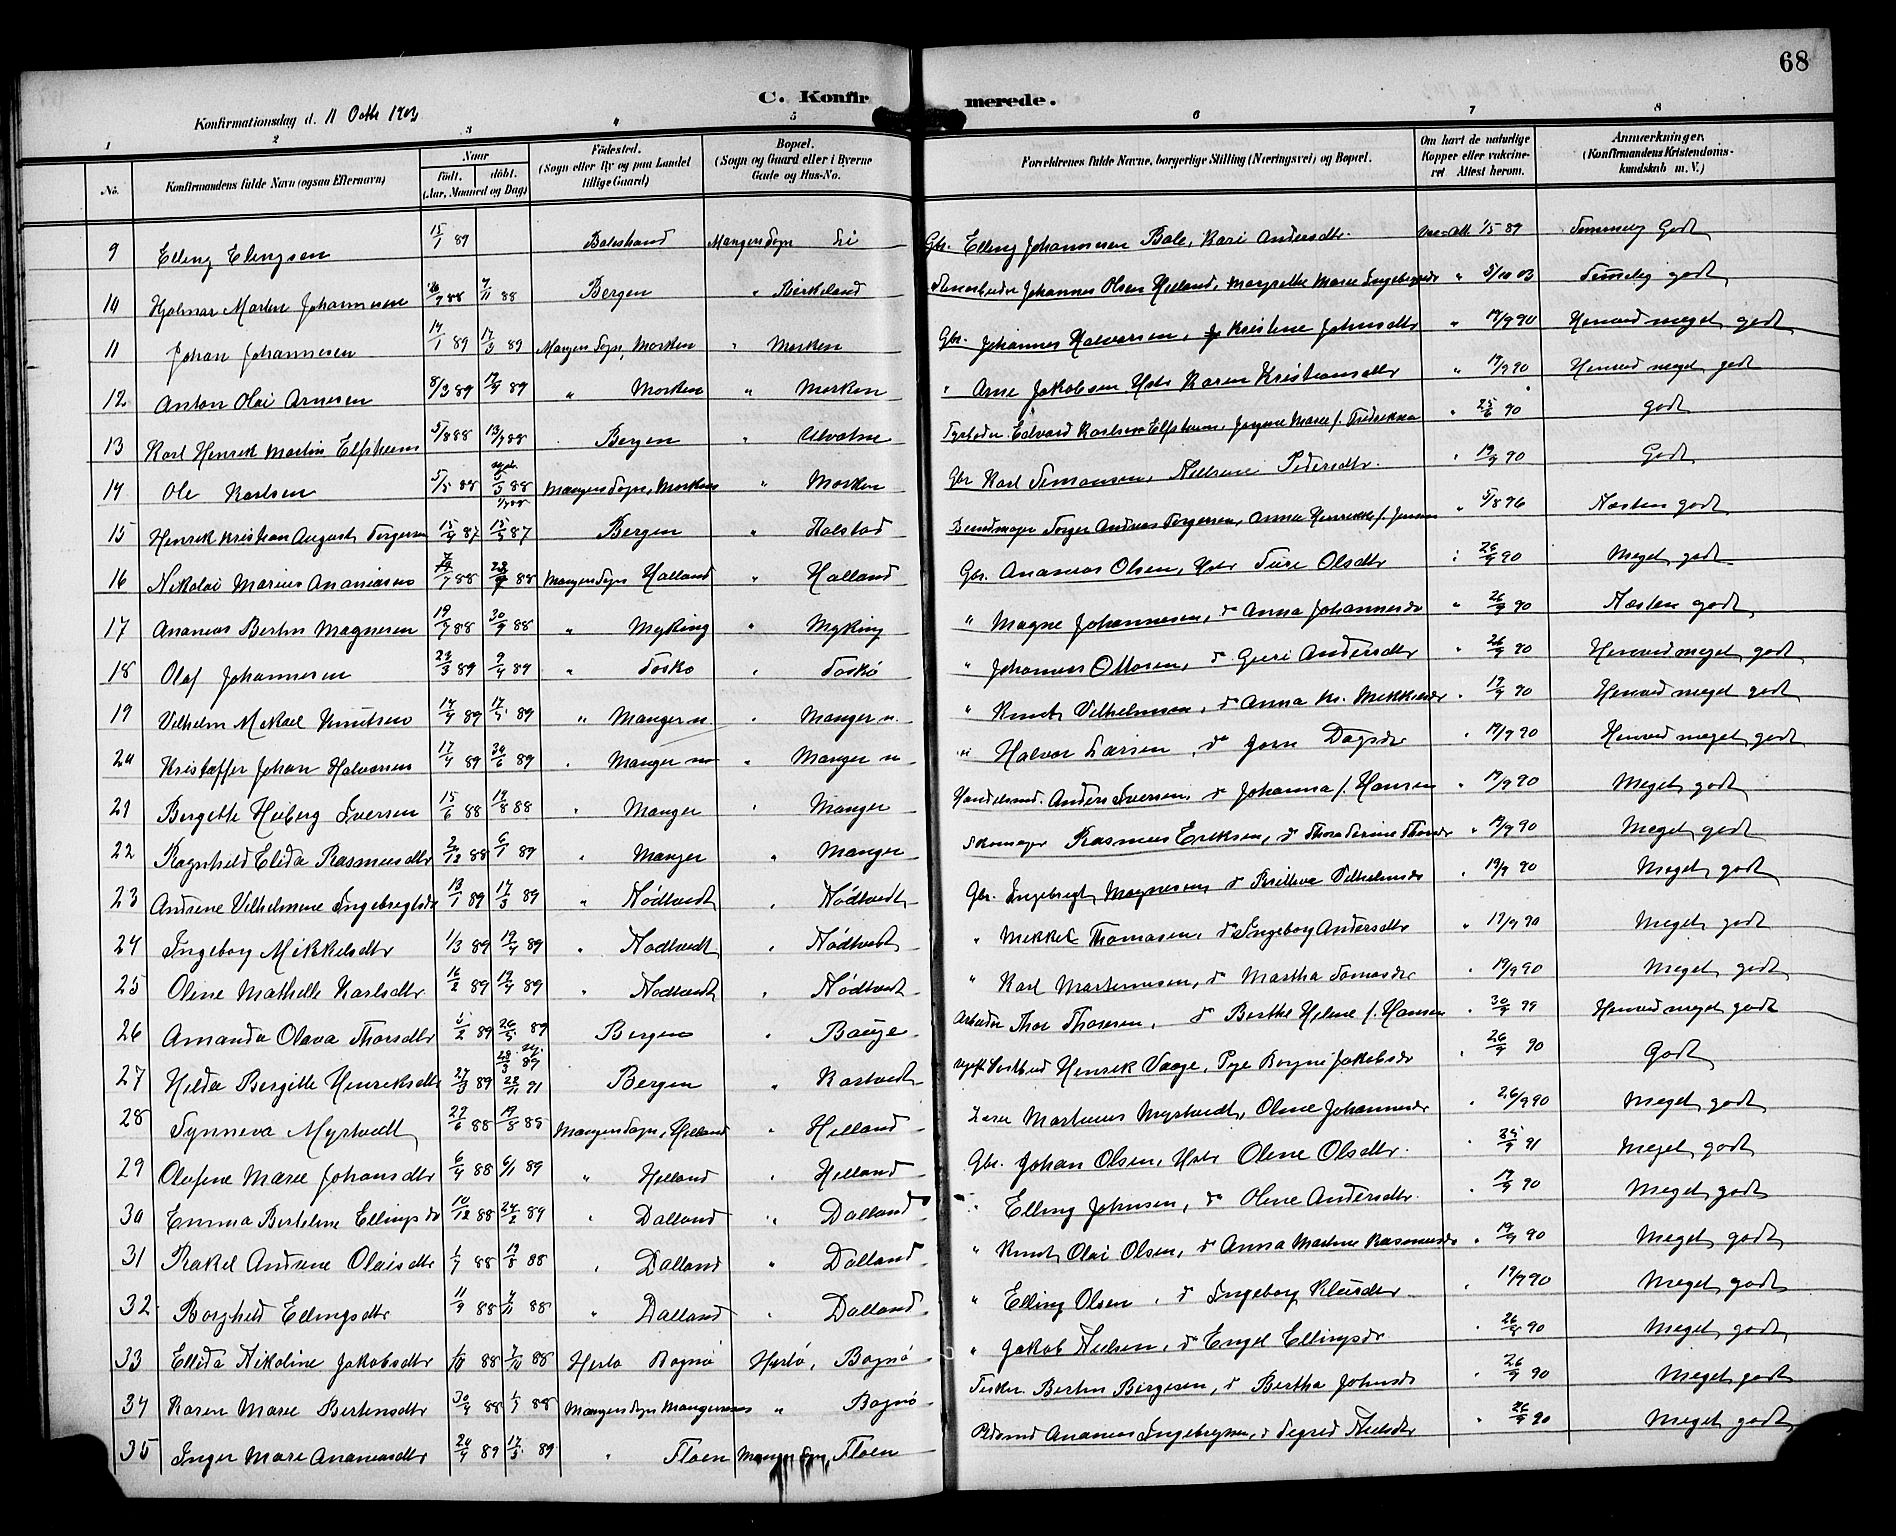 68
C. Konfirmerede.
Konfirmationsdag d. 11 Octb 1903
1 2 3 4 5 6 7 8
No. Konfirmandens fulde Navn (ogsaa Efternavn) Naar født. døbt. (Aar, Maaned og Dag) Fødested. (Sogn eller By og paa Landet tillige Gaard) Bopæl. (Sogn og Gaard eller i Byerne Gade og Hus-No. Forældrenes fulde Navne, borgerlige Stilling (Næringsvei) og Bopæl. Om havt de naturlige Kopper eller vakcineret Attest herom. Anmærkninger. (Konfirmandens Kristendomskundskab m. V.)
9 Elling Elingsen 15/1 89 Balestrand Mangers Sogn Li Gbr. Elling Johannesen Bale, Kari Andersdtr. 1/5 89 Temmelig Godt
10 Hjalmar Martin Johannesen 88 7/11 88 Bergen " Birkeland Johannes Olsen Helland, Margrethe Marie " 5/10 03 Temelig godt
11 Johan Johannesen 14/1 89 17/3 89 Mangers Sogn, Morken " Morken Gbr. Johannes Halvorsen, Kristine Johnsdtr " 19/9 90 Henved meget godt
12 Anton Olai Arnesen 8/3 89 89 " Morken " Morken " Arne Jakobsen Hstr Karen Kristiansdtr " 19/9 90 Henved meget godt
13 Karl Henrik Martin 5/8 88 88 Bergen " Edvard Karlsen " 25/6 90 godt
14 Ole Karlsen 5/5 88 Mangers Sogn, Morken " Morken Gbr Karl Simonsen, Nilsine Pedersdtr. " 19/9 90 Godt
15 Henrik Kristian August Torgersen 15/4 87 15/5 87 Bergen " Halstad Torger Andreas Torgersen, Anna Henrikke f. Jensen " 5/8 96 Næsten godt
16 Nikolai Marius Ananiassen 88 88 Mangers Sogn Halland " Halland Gbr. Ananias Olsen, Hstr Olsdtr " 26/9 90 Meget godt
17 Ananias Bertin Magnesen 19/7 88 30/9 88 " Myking " Myking " Magne Johannesen, do Anna Johannesdr " 26/9 90 Næsten godt
18 Olaf Johannesen 23/3 89 9/4 89 " Toskø " Toskø " Johannes Ottosen, do Guri Andersdtr " 26/9 90 Henved meget godt
19 Vilhelm Mikael Knutsen 14/4 89 89 " Manger n. " Manger n. " Knut Vilhelmsen, do Anna M. Mikkelsdr " 19/9 90 Henved meget godt
20 Kristoffer Johan Halvorsen 17/4 89 30/6 89 " Manger " Manger n " Halvor Larsen, do Dagsdr " 19/9 90 Henved meget godt
21 Bergitte Heiberg Iversen 15/6 88 19/8 88 " Manger " Manger Handelsmd. Anders Iversen, do Johanna f. Hansen " 19/9 90 Meget godt
22 Ragnhild Elida Rasmusdtr 2/12 88 6/1 89 " Manger " Manger Skomager Rasmus Eriksen, do " 19/9 90 Meget godt
23 Andrine Vilhelmine Ingebrigtsdr 13/1 89 17/3 89 " Nødtvedt " Nødtvedt Gbr. Ingebrigt Magnesen do Vilhelmsdr " 19/9 90 Meget godt
24 Ingeborg Mikkelsdtr 1/3 89 19/4 89 " Nødtvedt " Nødtvedt " Mikkel Thomasen, do Ingeborg Andersdtr " 19/9 90 Meget godt
25 Oline Mathilde Karlsdtr 16/2 89 19/4 89 " Nødtvedt " Nødtvedt " Karl Martinusen, do Martha " 19/9 90 Meget godt
26 Amanda Olava Thorsdtr 5/2 89 26/5 89 Bergen " Bauge Arbeider Thor Thorsen, do Berthe Helene f. Hansen " 30/9 99 Henved meget godt
27 Hilda Bergitte Henriksdtr 27/3 89 Bergen " Rostvedt Henrik Vaage, Jakobsdr " 26/9 90 Godt
28 Synneva Myrtvedt 29/6 88 19/8 88 Mangers Sogn, Helland " Helland Martinus Myrtvedt, Oline Johannesdr " 26/9 90 Meget godt
29 Olufine Marie Johansdtr 88 6/1 89 " Helland " Helland Gbr. Johan Olsen, Hstr Oline Olsdtr. " 91 Meget godt
30 Emma Bertine Ellingsdr 10/12 88 24/2 89 " Dalland " Dalland " Elling Johnsen, do Oline Andersdtr. " 19/9 90 Meget godt
31 Rakel Andrine Olaisdtr 1/7 88 19/8 88 " Dalland " Dalland " Knut Olai Olsen, do Anna Martine Rasmusdr " 19/9 90 Meget godt
32 Borghild Ellingsdtr 11/9 88 4/11 88 " Dalland " Dalland " Elling Olsen, do Ingeborg " 19/9 90 Meget godt
33 Ellida Nikoline Jakobsdtr 88 88 Herlø Bognø Herlø, Bognø " Jakob Nielsen, do Engel Ellingsdr " 26/9 90 Meget godt
34 Karen Marie Bertinsdtr 30/4 88 88 Mangers Sogn Mangersnes " Bognø Fisker Bertin Børgesen, do Bertha Johnsdr " 26/9 90 Meget godt
35 Inger Marie Ananiasdtr 20/4 89 17/5 89 " Floen Mangers Sogn, Floen Ananias Ingebrigtsen, do Sigrid Nielsdtr " 26/9 90 Meget godt